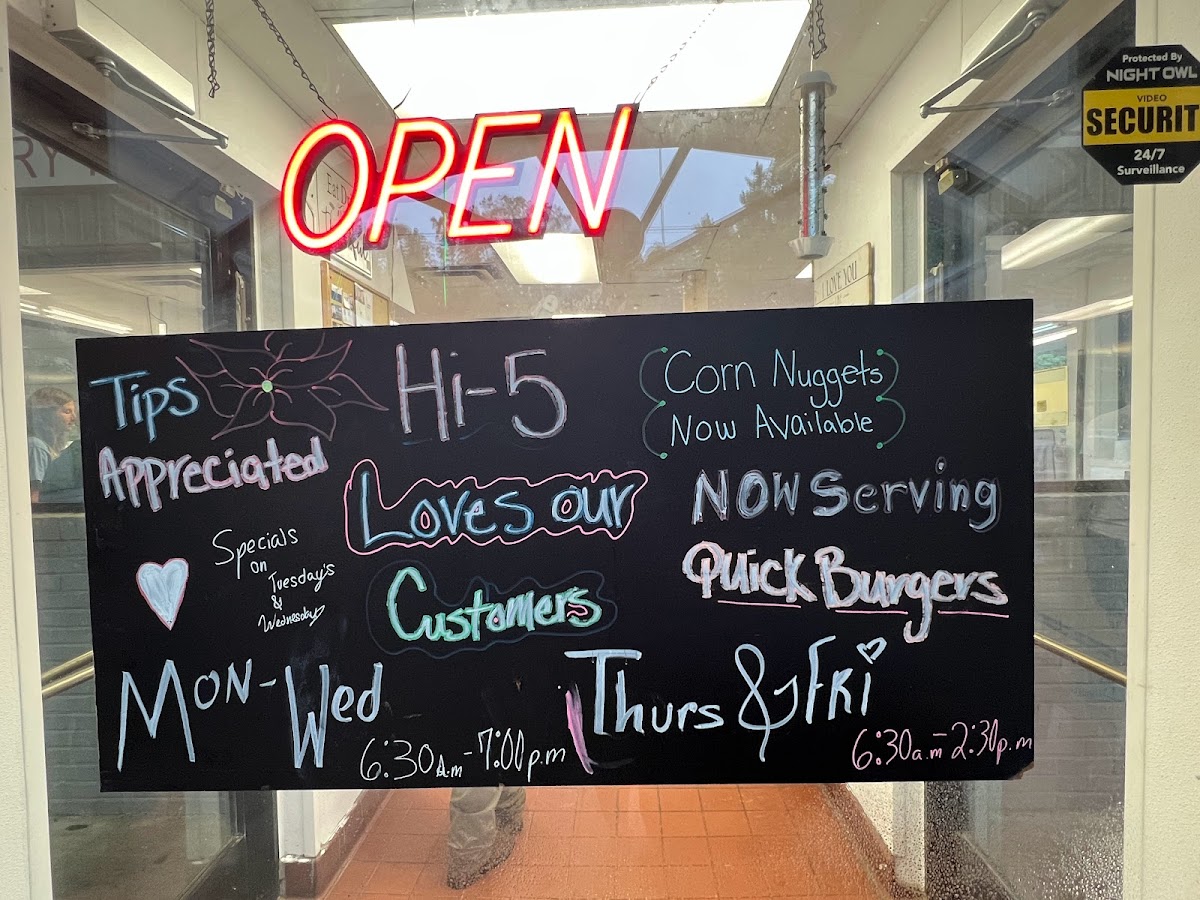 OPEN
Protected By
NIGHT OWL
VIDEO
SECURIT
24/7
Surveillance
RY
Eat
I LOVE YOU
Tips
Appreciated
Hi-5
Loves our
Customers
Corn Nuggets
Now Available
Now Serving
Quick Burgers
Specials
on
Tuesday's
&
Wednesday
Mon-Wed
6:30a.m-7:00p.m
Thurs & Fri
6:30a.m-2:30p.m